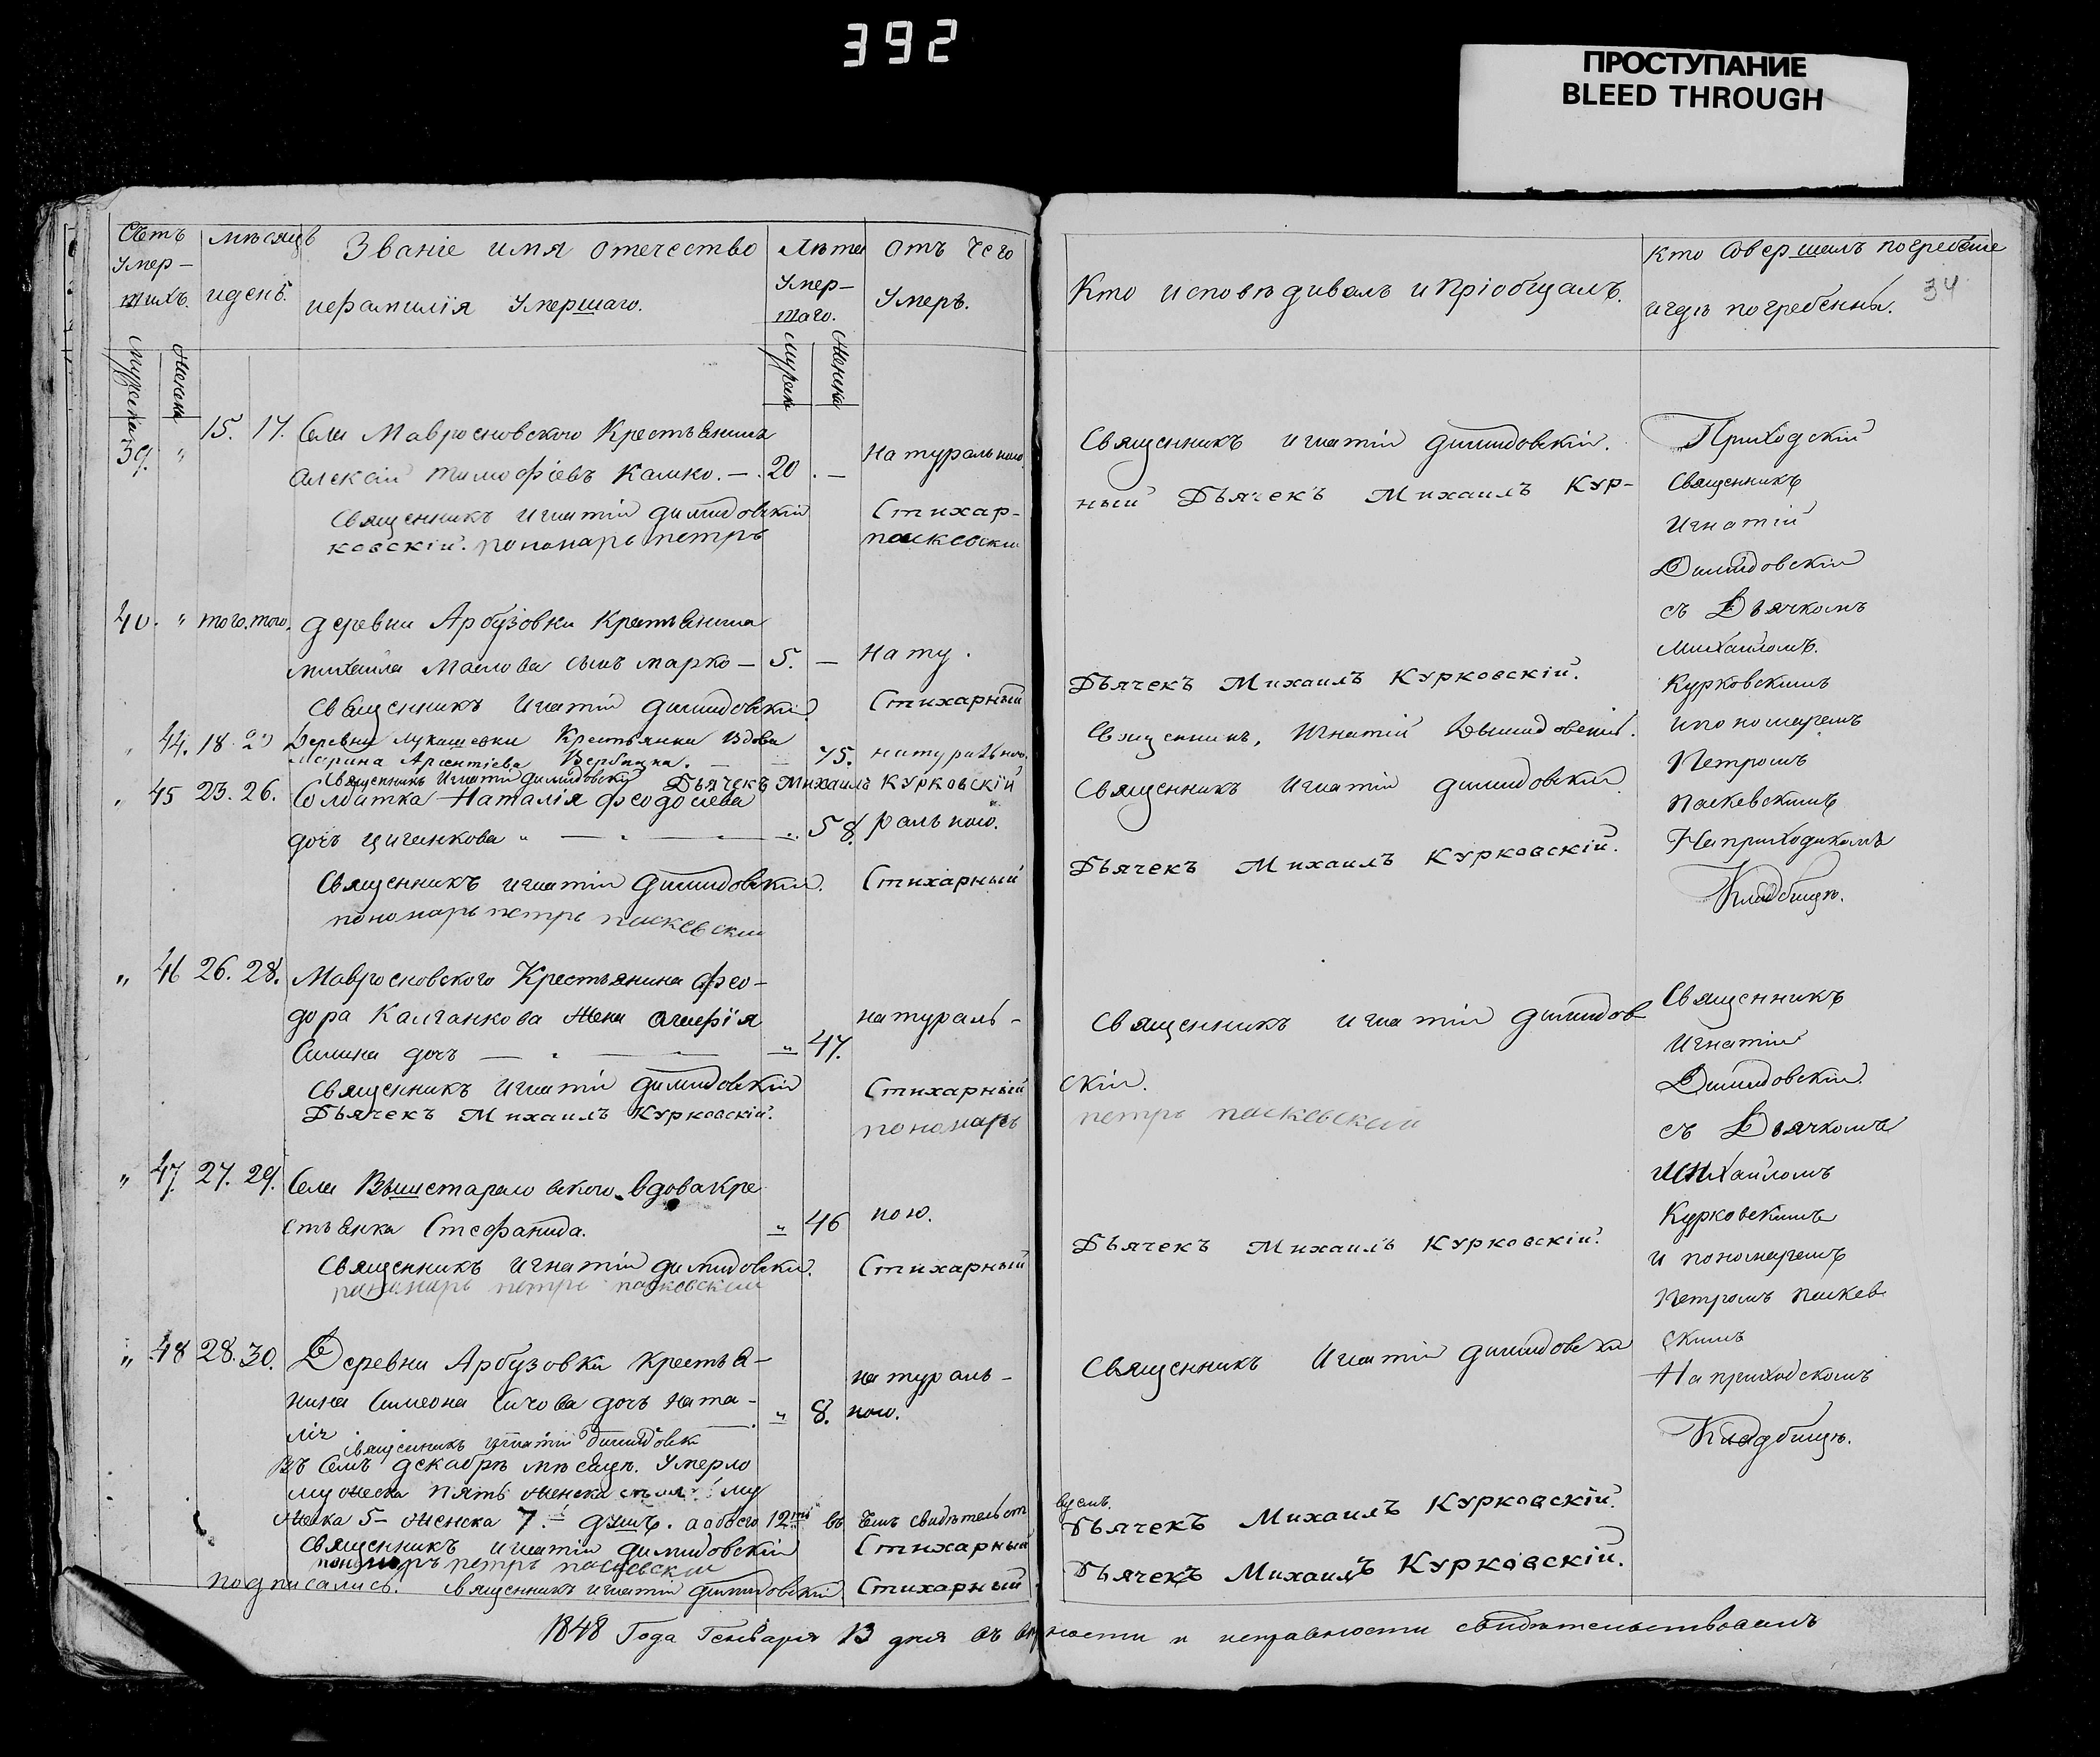 392
ПРОСТУПАНИЕ
BLEED THROUGH
34
Счетъ Умер- шихъ.
мѣсяцъ и день.
Званіе имя отечество
и фамилія Умершаго.
Лѣта Умер- шаго.
отъ чего Умеръ.
Кто исповѣдивалъ и пріобщалъ.
Кто Совершалъ погребеніе
и гдѣ погребенны.
мужеска
женска
мужска
женска
39. " 15. 17. Села Мавросновского Крестьянинъ
Алексій Тимофіевъ Калко. — 20. —
натуральною
Священникъ Игнатій Димидовскій.
Священникъ Игнатій Димидовскій Стихар-
ный Дьячекъ Михаилъ Кур-
ковскій. пономарь петръ паскевскій
40. " того. того. деревни Арбузовки Крестьянина
михаила Маслова сынъ марко — 5. — нату.
Священникъ Игнатій Димидовскій. Стихарный
Дьячекъ Михаилъ Курковскій.
" 44. 18. 20 Деревни Лукашевки Крестьянка Вдова
Марина Арсентіева — — 75. натуральною.
Священникъ, Игнатій Дымидовскій.
Священникъ Игнатій Димидовскій Дьячекъ Михаилъ Курковскій
" 45 23. 26. Солдатка Наталія Феодосіева
дочь циганкова " — " — 58. ральною.
Священникъ Игнатій Димидовскій
Священникъ Игнатій Димидовскій. Стихарный
Дьячекъ Михаилъ Курковскій.
пономарь петръ паскевскій
" 46 26. 28. Мавросновского Крестьянина Фео-
дора Калганкова Жена Агафія
Силина дочь — " — " 47.
натураль-
Священникъ Игнатій Димидов
скій.
Священникъ Игнатій Димидовскій Стихарный
Дьячекъ Михаилъ Курковскій.
пономарь петръ паскевский
" 47. 27. 29. Села вдова кре
стьянка Стефанида. " 46 ною.
Священникъ Игнатій Димидовскій. Стихарный
Дьячекъ Михаилъ Курковскій.
пономарь петръ паскевский
" 48 28. 30. Деревни Арбузовки крестьа-
нина Симеона Сичова дочь ната-
лія " 8.
натураль-
ною.
Священникъ Игнатій Димидовскій
Священникъ Игнатій Димидовск
Въ Семъ декабрѣ мѣсяцѣ. Умерло
мужеска пять женска му
жска 5 — женска 7. — душъ. а обоего 12ти въ Чемъ свидѣтельст
вуемъ.
Священникъ Игнатій Димидовскій Стихарный
Дьячекъ Михаилъ Курковскій.
пономаръ петръ паскевскій
подписались. Священникъ Игнатій Димидовскій Стихарный
Дьячекъ Михаилъ Курковскій.
Приходскій
Священникъ
Игнатій
Димидовскій
съ Дьячкомъ
михаиломъ.
Курковскимъ
и пономаремъ
Петромъ
паскевскимъ
На приходскомъ
Кладбищѣ.
Священникъ
Игнатій
Димидовскій.
съ Дьячкомъ
михаиломъ
Курковскимъ
и пономаремъ
Петромъ паскев
скимъ
На приходскомъ
Кладбищѣ.
1848 Года Генваря 13 дня въ ности и исправности свидѣтельствовалъ